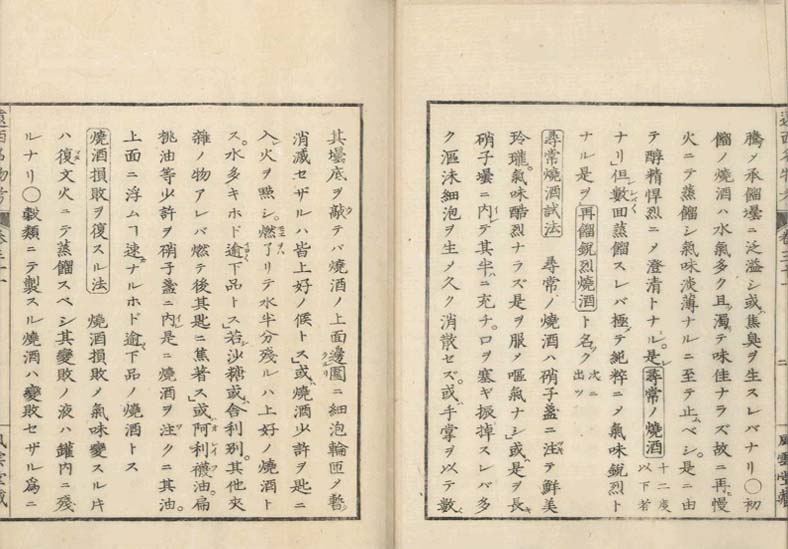 騰ノ承餾壜ニ泛溢シ或ハ焦臭ヲ生スレバナリ○初
餾ノ焼酒ハ水氣多ク且濁テ味佳ナラズ故ニ再慢
火ニテ蒸餾シ氣味淡薄ナルニ至テ止ムベシ。是ニ由
テ醇精悍烈ニメ澄清トナル。是レ尋常ノ焼酒 十二度以下者
ナリ」但シ數回蒸餾スレバ極テ純粹ニメ氣味鋭烈ト
ナル是ヲ再餾鋭烈焼酒ト名ク 次ニ出ツ
尋常焼酒試法 尋常ノ焼酒ハ硝子盞ニ注テ鮮美
玲瓏。氣味酷烈ナラズ是ヲ服メ嘔氣ナシ」或ハ是ヲ長
硝子壜ニ内レテ其半ニ充チ。口ヲ塞ギ振掉スレバ多
ク漚沫細泡ヲ生メ久ク消散セズ。或ハ手掌ヲ以テ數
其壜底ヲ敲テバ焼酒ノ上面邊圍クルリニ細泡輪匝メ暫
消滅セザルハ皆上好ノ候トス」或ハ焼酒少許ヲ匙ニ
入レ火ヲ點シ。燃了リテ水半分殘ルハ上好ノ焼酒ト
ス。水多キホド逾下品トス」若シ沙糖或ハ舎利別。其他夾
雜ノ物アレバ燃テ後其匙ニ焦著ス」或ハ阿利襪オレイフ油。扁
桃油等少許ヲ硝子盞ニ内レ是ニ焼酒ヲ注クニ其油。
上面ニ浮ムヿ速ナルホド逾下品ノ焼酒トス
焼酒損敗ヲ復スル法 焼酒損敗メ氣味變スル片
ハ復タ文火ニテ蒸餾スベシ其變敗ノ液ハ罐内ニ殘
ルナリ○穀類ニテ製スル焼酒ハ變敗セザル爲ニ
遠西名物考 卷三十
二
風雲堂藏